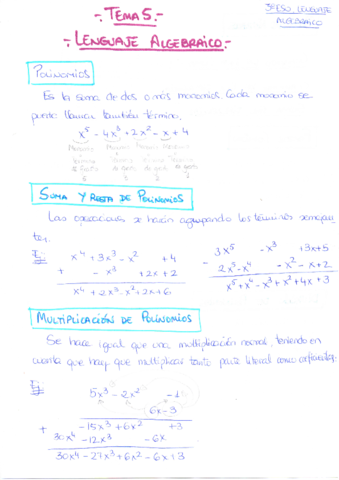 TEMA 5.
3º ESO, LENGUAJE
ALGEBRAICO
LENGUAJE ALGEBRAICO.
POLINOMIOS
Es la suma de dos o más monomios. Cada monomio se
puede llamar también término.
x⁵ - 4x³ + 2x² - x + 4
Monomio Monomio Monomio Monomio
Término Término Término Término
SUMA Y RESTA DE POLINOMIOS
Las operaciones se hacen agrupando los términos semejan-
tes.
Ej: x⁴ + 3x³ - x² + 4
+ - x³ + 2x + 2
x⁴ + 2x³ - x² + 2x + 6
3x⁵ - x³ + 3x + 5
- 2x⁵ - x⁴ - x² - x + 2
x⁵ + x⁴ - x³ + x² + 4x + 3
MULTIPLICACIÓN DE POLINOMIOS
Se hace igual que una multiplicación normal, teniendo en
cuenta que hay que multiplicar tanto parte literal como
Ej: 5x³ - 2x² - 1
6x - 3
-15x³ + 6x² + 3
+ 30x⁴ - 12x³ - 6x
30x⁴ - 27x³ + 6x² - 6x + 3